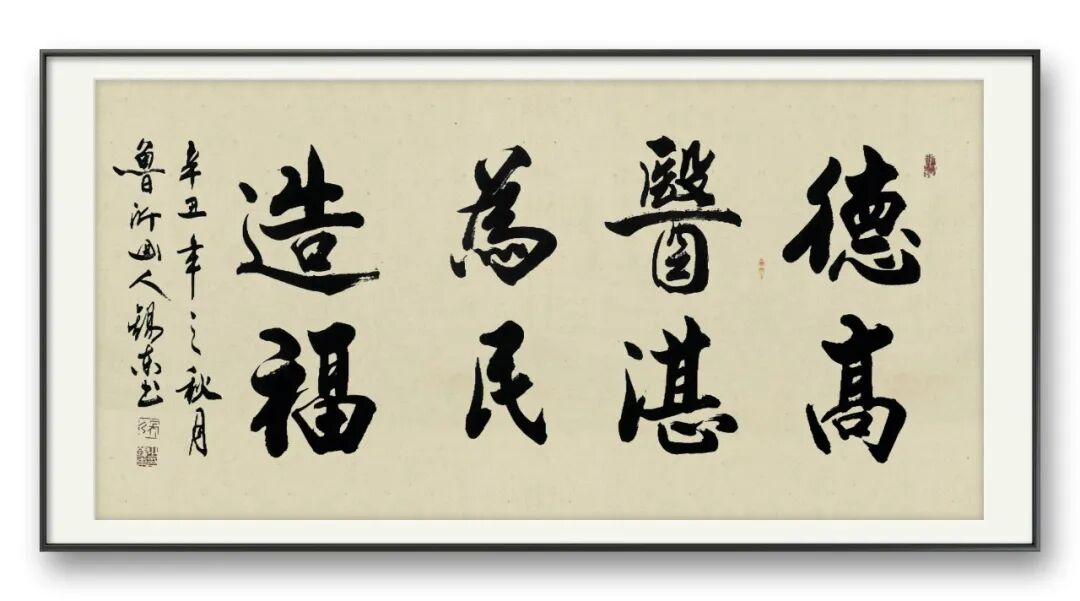 德高
醫湛
為民
造福
辛丑年之秋月
魯沂山人錫東书